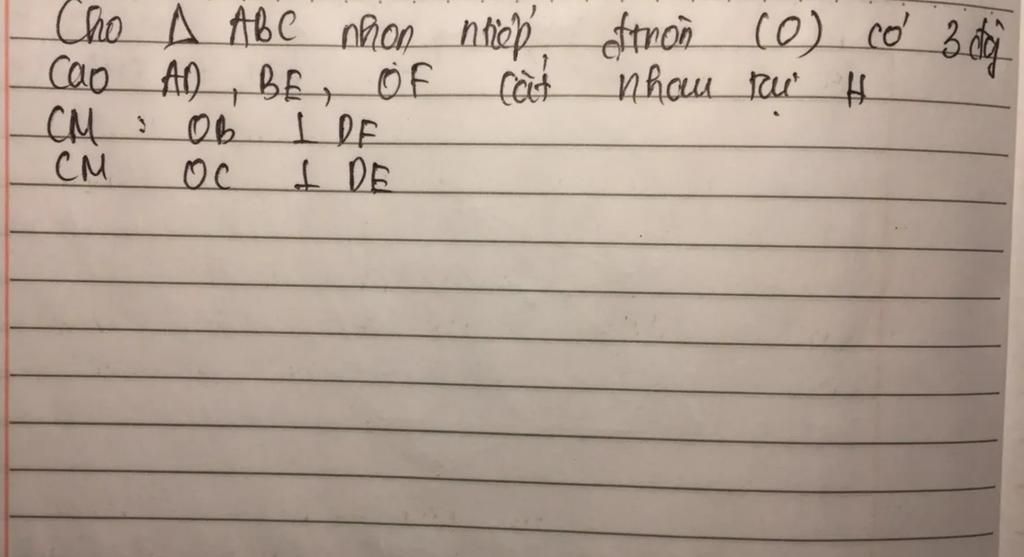 Cho Δ ABC nhọn ntiếp đtròn (O) có 3 đg
cao AD, BE, OF cắt nhau tại H
CM : OB ⊥ DF
CM OC ⊥ DE